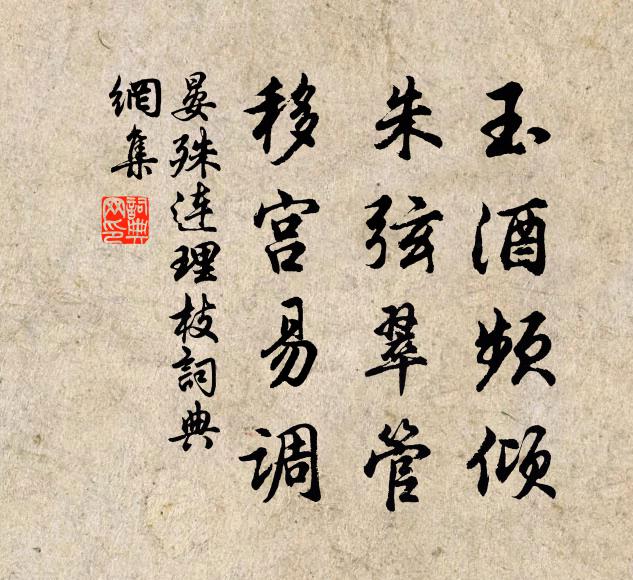 玉酒频倾
朱弦翠管
移宫易调
晏殊连理枝詞典
網集
詞典
网印